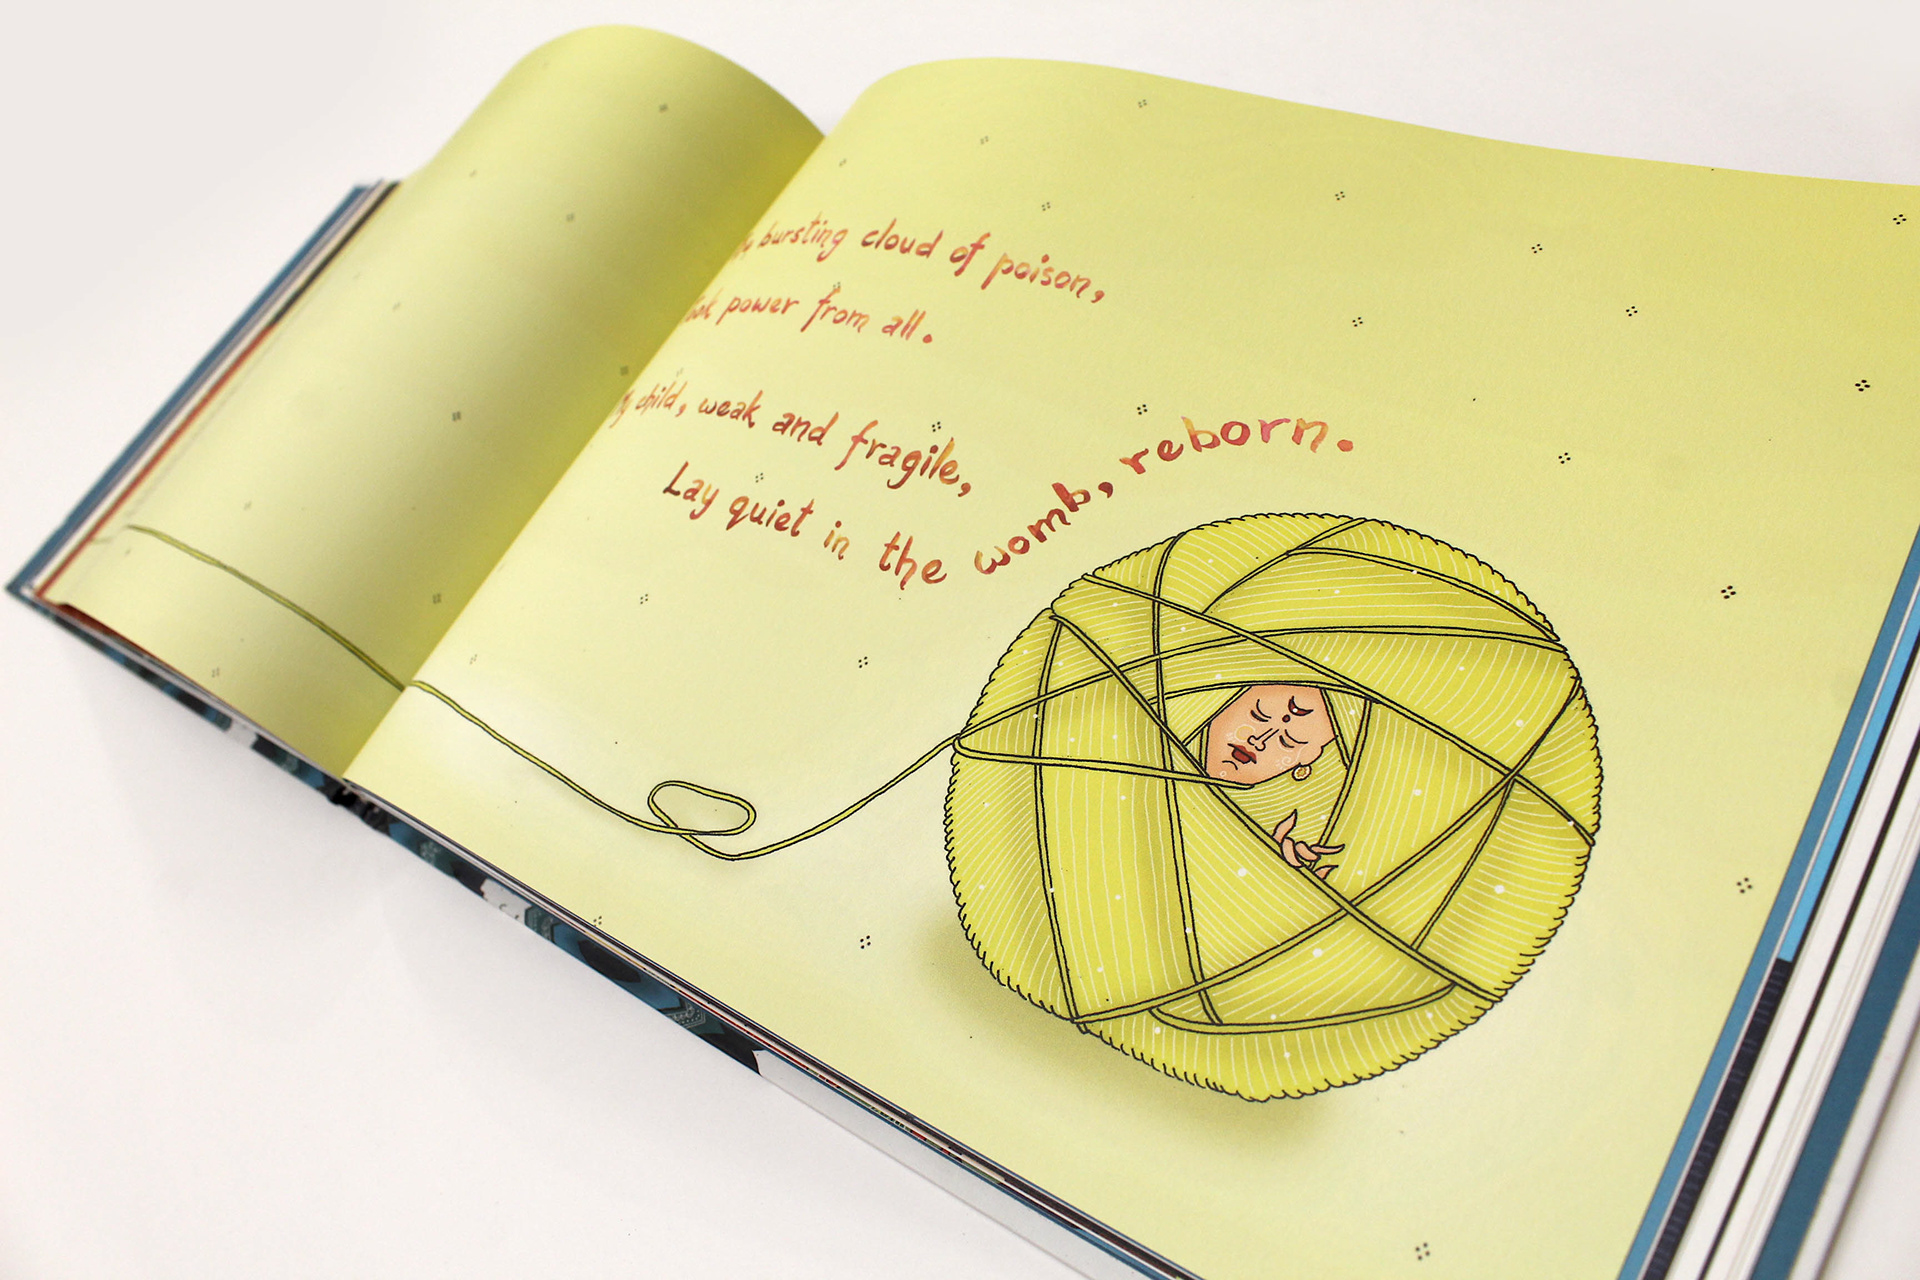 bursting cloud of poison,
power from all.
child, weak and fragile,
Lay quiet in the womb, reborn.